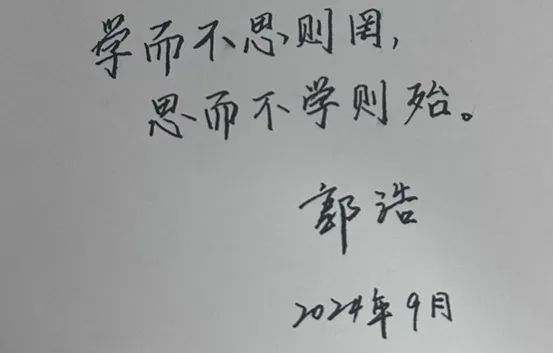 学而不思则罔，
思而不学则殆。
郭浩
2024年9月